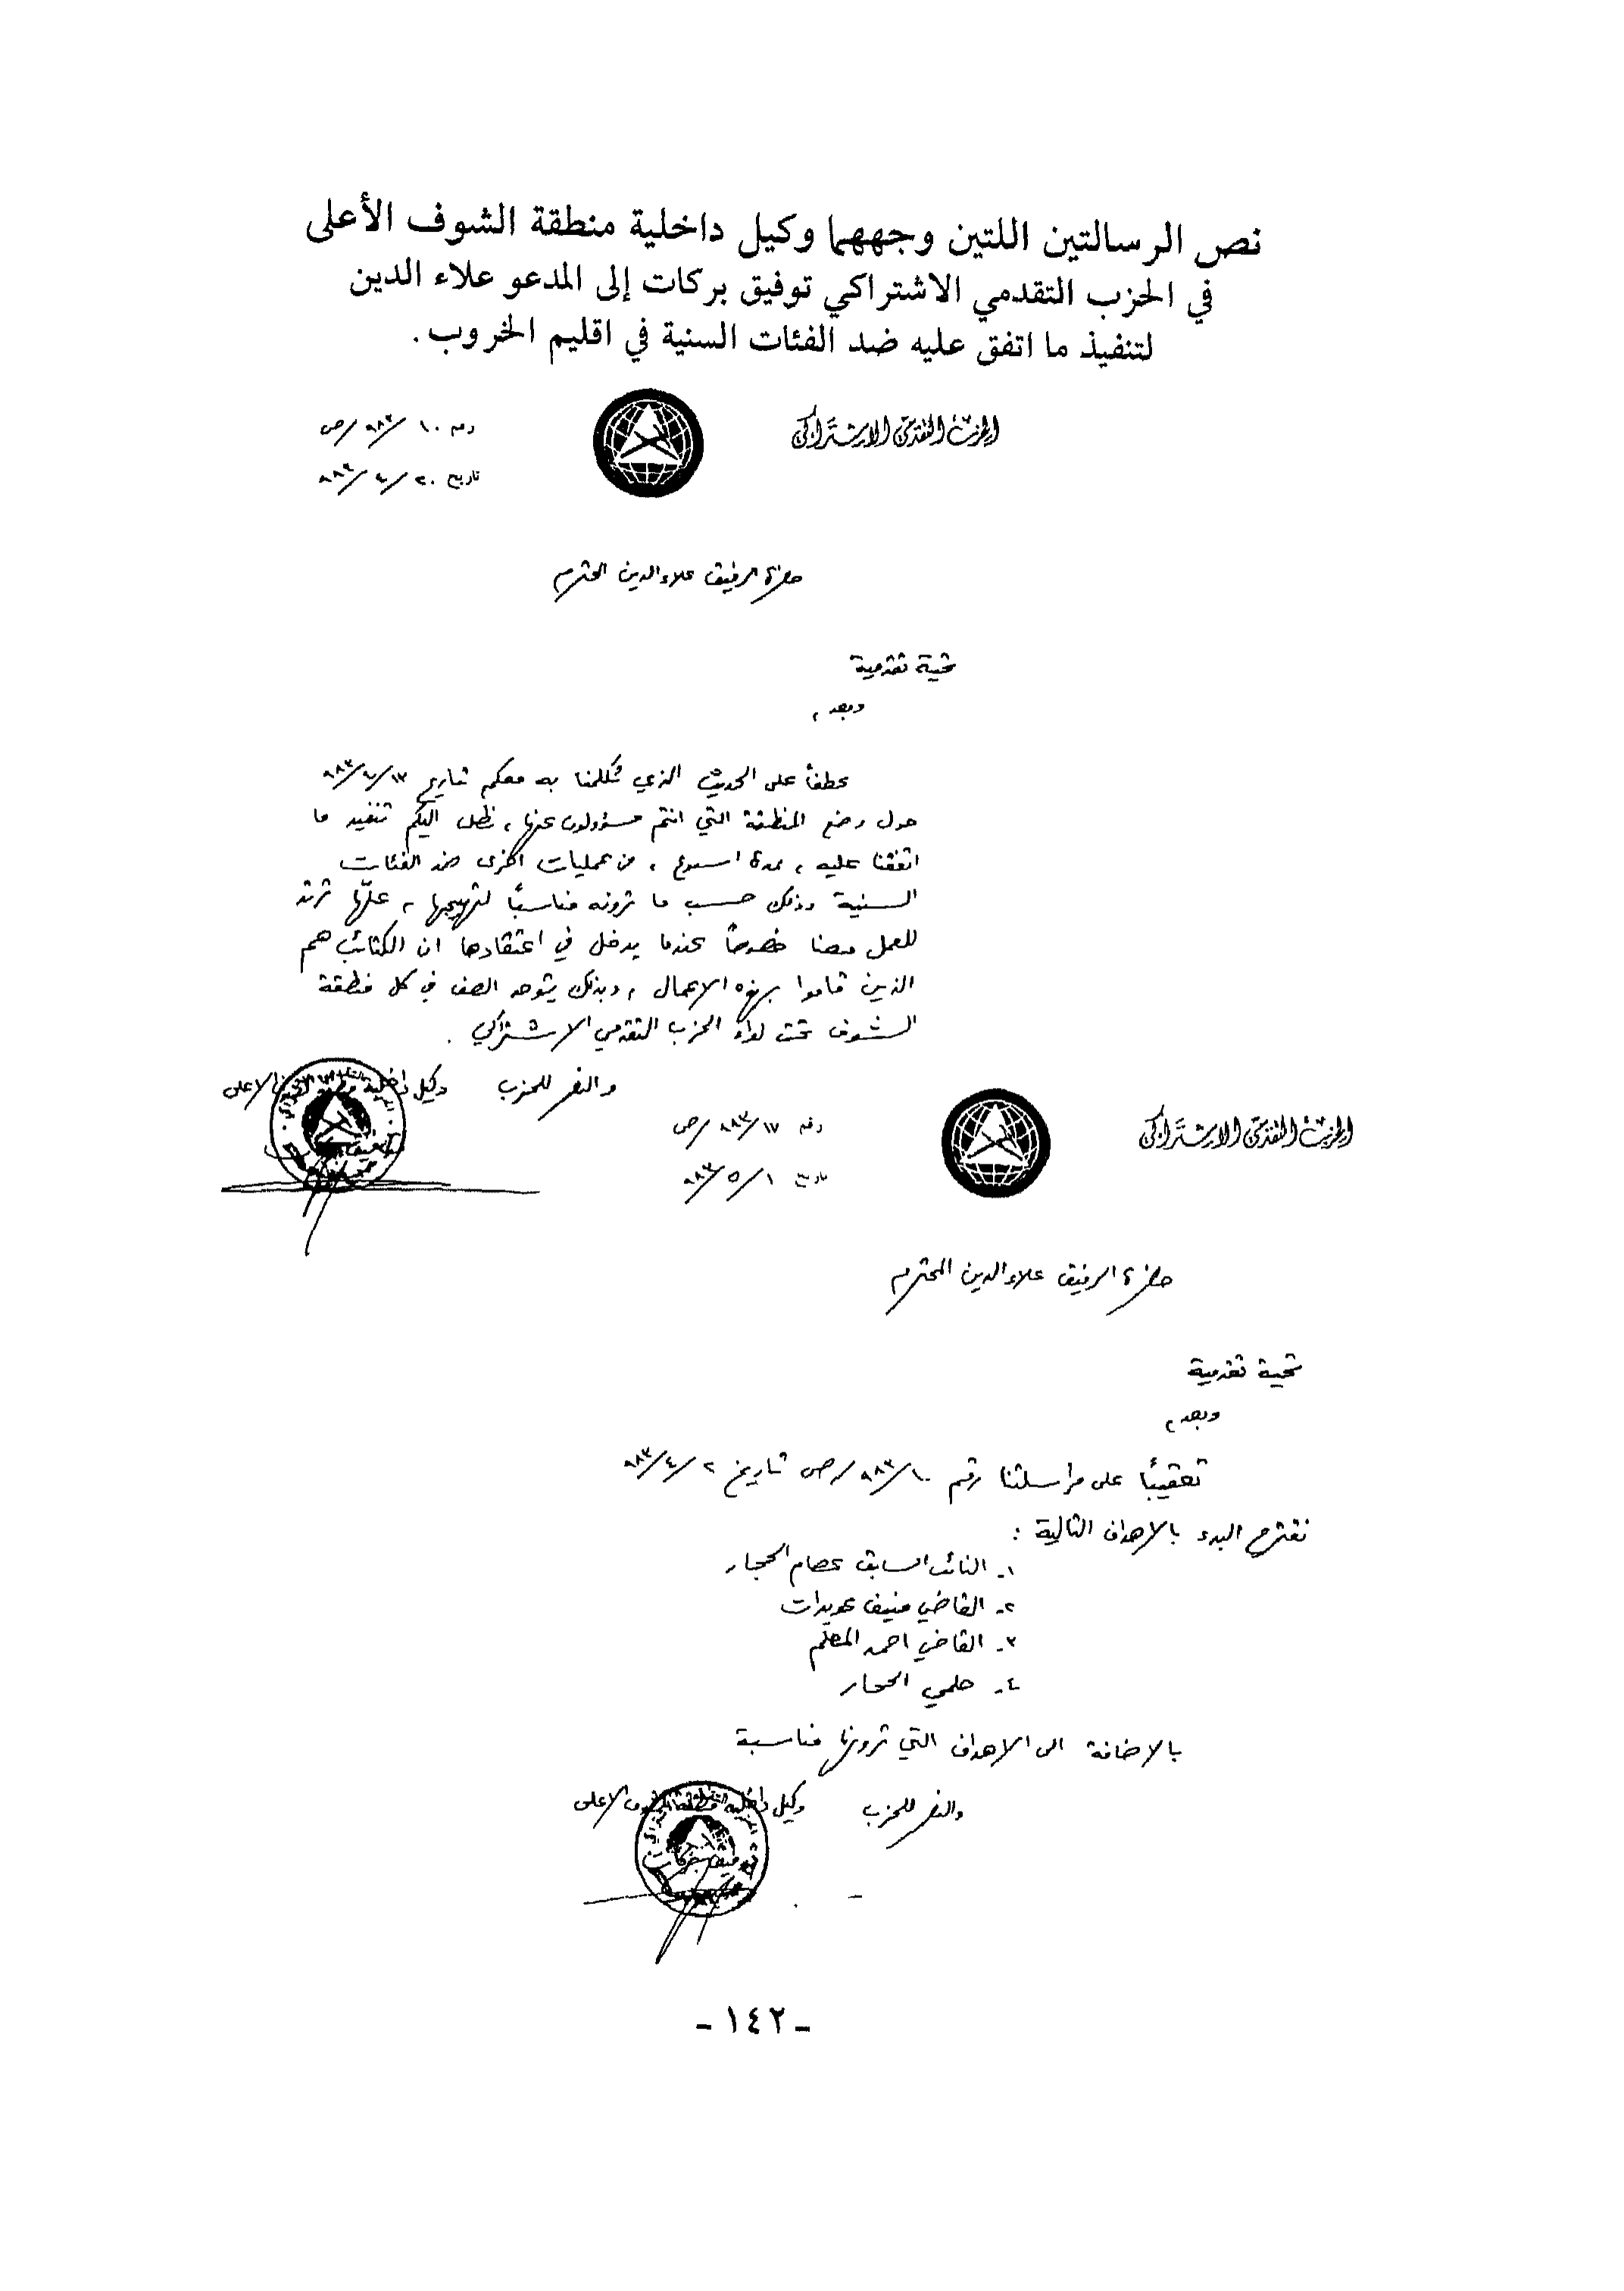 نص الرسالتين اللتين وجههما وكيل داخلية منطقة الشوف الأعلى
في الحزب التقدمي الاشتراكي توفيق بركات إلى المدعو علاء الدين
لتنفيذ ما اتفق عليه ضد الفئات السنية في اقليم الخروب.
الحزب التقدمي الاشتراكي
رقم ١٠/٩٨٣/ص
تاريخ ٢٠/٤/٩٨٣
حضرة الرفيق علاء الدين المحترم
تحية تقدمية
وبعد،
عطفاً على الحديث الذي تكلمنا به معكم تاريخ ١٣/٤/٩٨٣
حول وضع المنطقة التي انتم مسؤولون عنها، نطلب اليكم تنفيذ ما
اتفقنا عليه، لمدة اسبوع، من عمليات اخرى ضد الفئات
السنية وذلك حسب ما ترونه مناسباً لتهييجها، علّها ترتد
للعمل معنا خصوصاً عندما يدخل في اعتقادها ان الكتائب هم
الذين قاموا بهذه الاعمال، وبذلك يتوحد الصف في كل منطقة
الشوف تحت لواء الحزب التقدمي الاشتراكي.
والنصر للحزب وكيل داخلية منطقة الشوف الاعلى
الحزب التقدمي الاشتراكي
رقم ١٧/٩٨٣/ص
تاريخ ١/٥/٩٨٣
حضرة الرفيق علاء الدين المحترم
تحية تقدمية
وبعد،
تعقيباً على مراسلتنا رقم ١٠/٩٨٣/ص تاريخ ٢٠/٤/٩٨٣
نقترح البدء بالاهداف التالية:
١- النائب السابق عصام الحجار
٢- القاضي منيف عويدات
٣- القاضي احمد المعلّم
٤- حلمي الحجار
بالاضافة الى الاهداف التي ترونها مناسبة
والنصر للحزب وكيل داخلية منطقة الشوف الاعلى
توفيق بركات
- ١٤٢ -